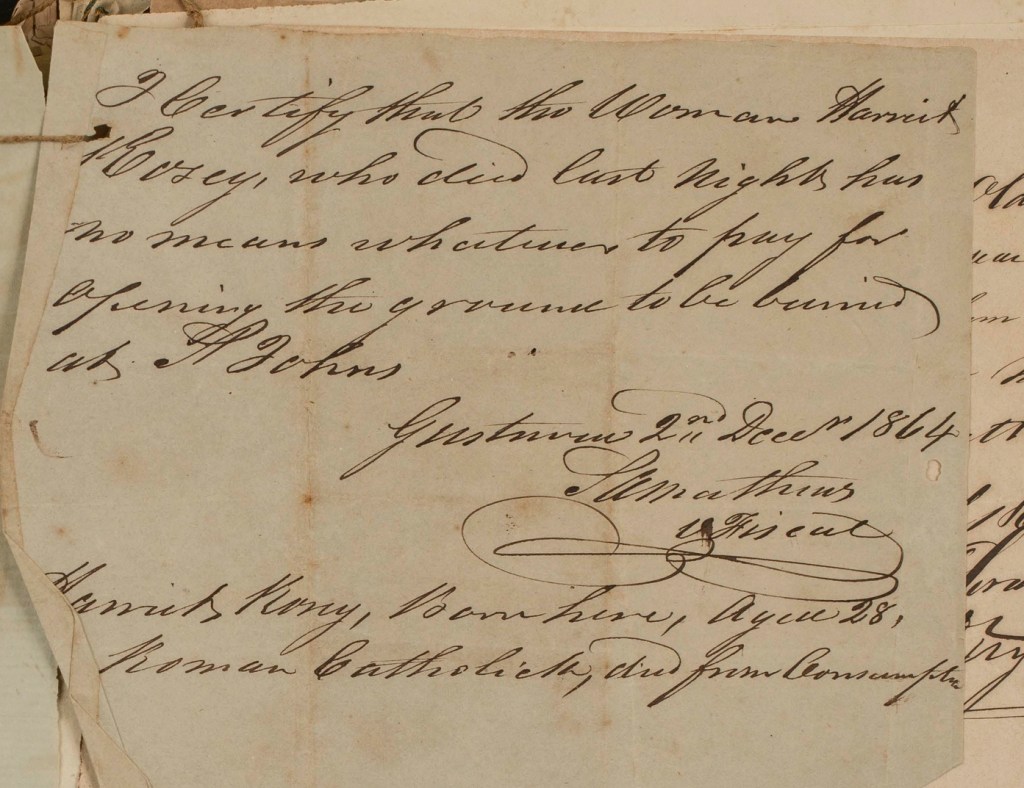 I Certify that the Woman Harriet
Rosey, who died last night, has
no means whatever to pay for
opening the ground to be buried
at St Johns
Gustavia 2nd Decer 1864
Mathews
Fiscal
Harriet Rosey, Born here, Aged 28,
Roman Catholick, died from Consumption